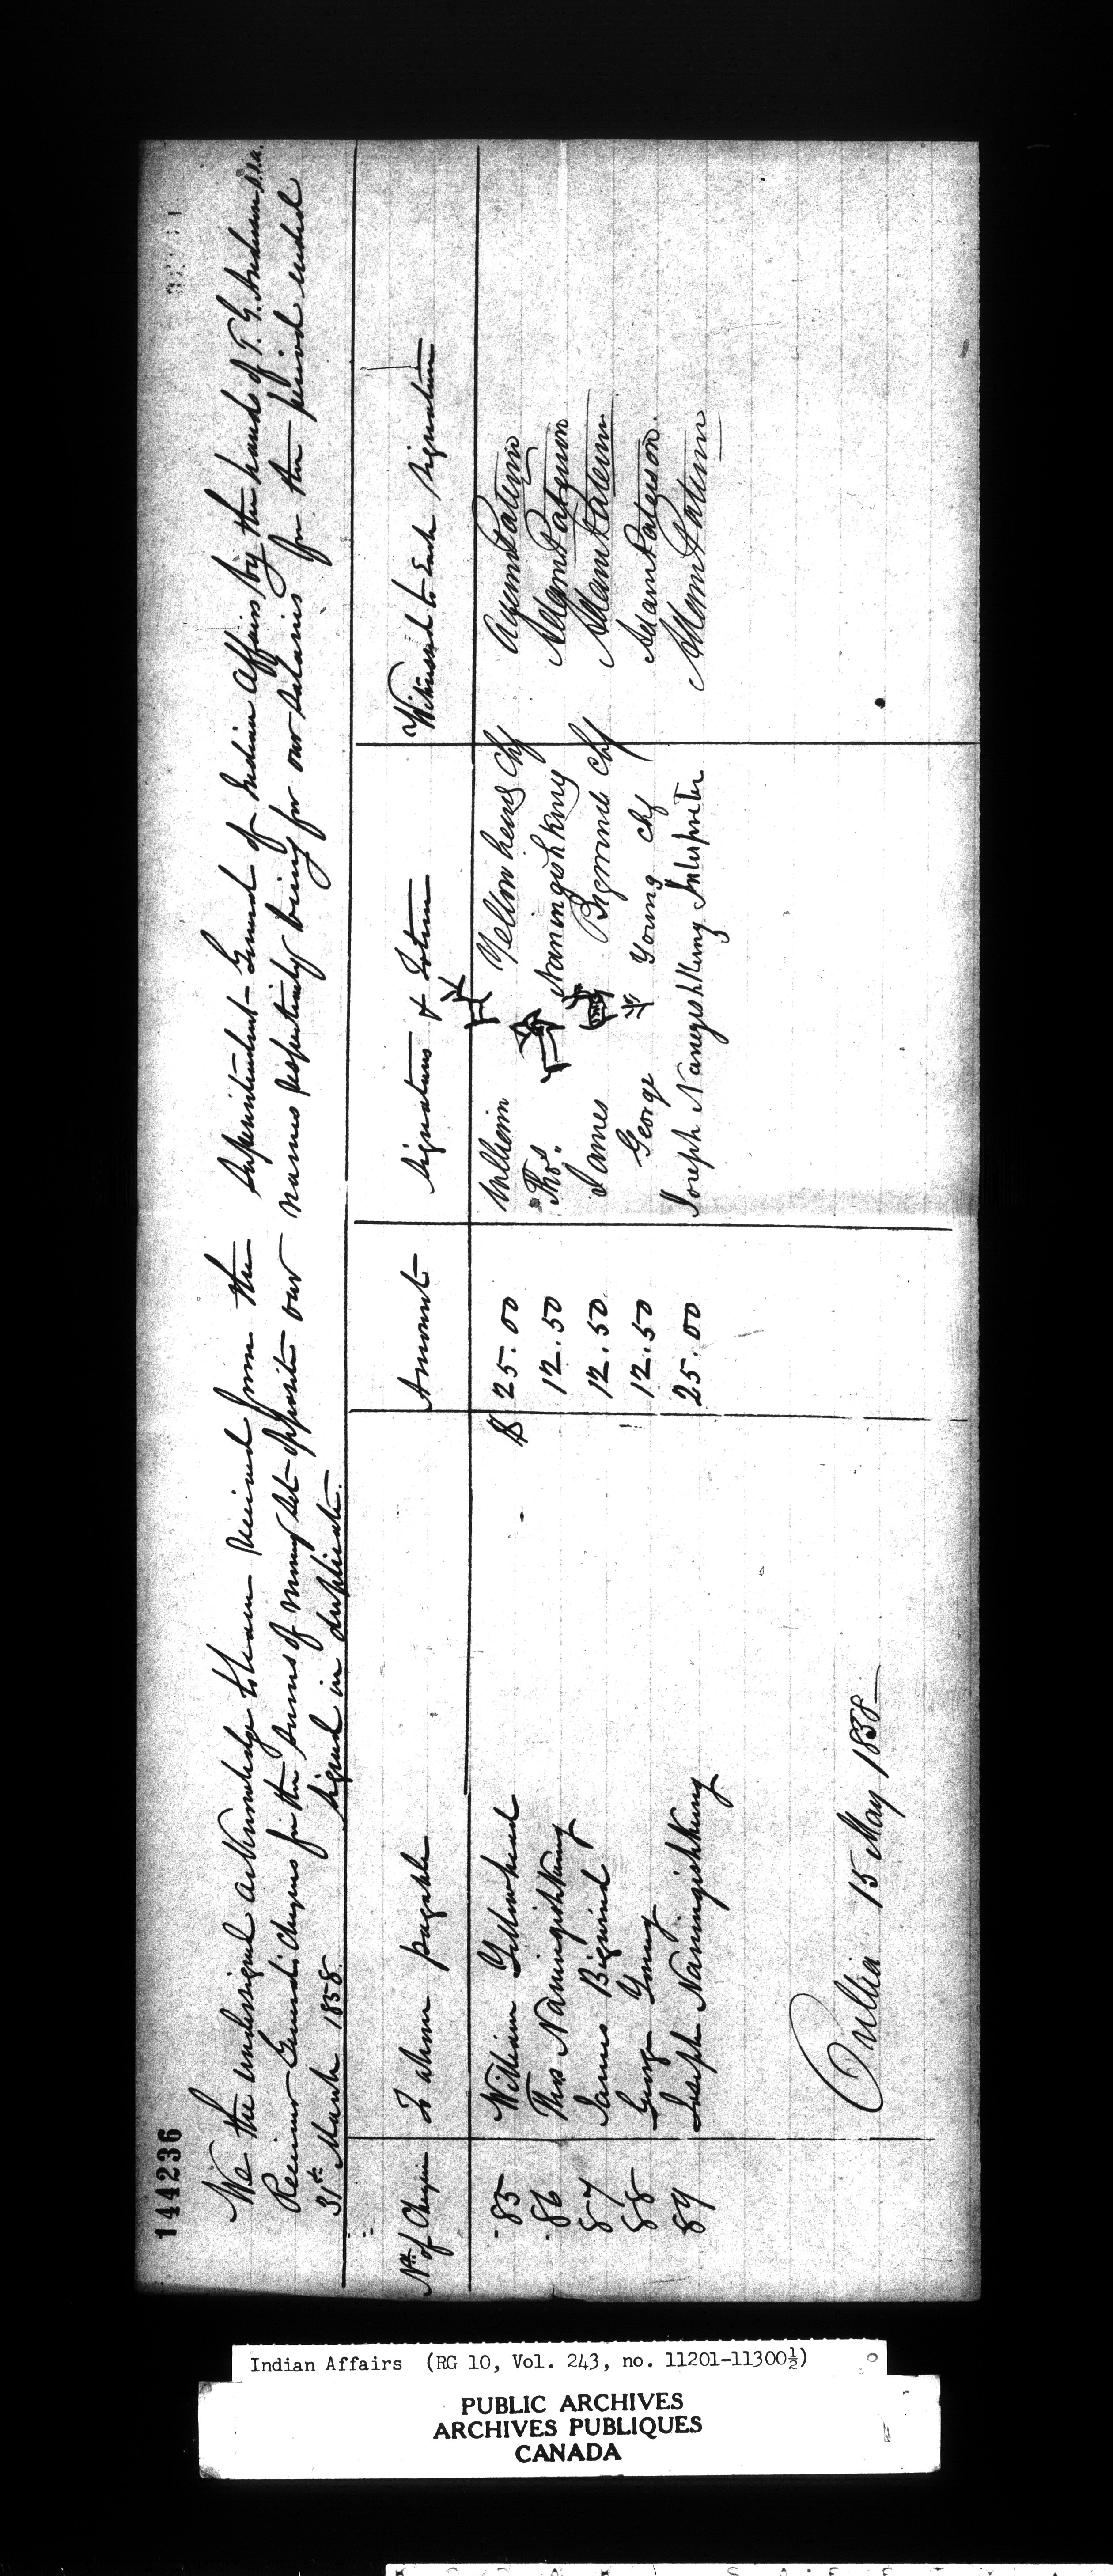 144236
We the undersigned acknowledge to have received from the Superintendent General of Indian Affairs by the hands of T. G. Anderson S.I.A.
Receiver General's cheques for the sums of money set opposite our names respectively being for our salaries for the period ended
31st March 1858. Signed in duplicate.
No. of Cheque To whom payable Amount Signatures & Totems Witnessed to Each Signature
85 William Yellowhead $ 25.00 William Yellowhead Chf Adam Paterson
86 Thos Naningishkung 12.50 Thos. Naningishkung Adam Paterson
87 James Bigwind 12.50 James Bigwind Chf Adam Paterson
88 George Young 12.50 George Young Chf Adam Paterson.
89 Joseph Naningishkung 25.00 Joseph Nanegishkung Interpreter Adam Paterson
Orillia 15 May 1858
Indian Affairs (RG 10, Vol. 243, no. 11201-11300½)
PUBLIC ARCHIVES
ARCHIVES PUBLIQUES
CANADA